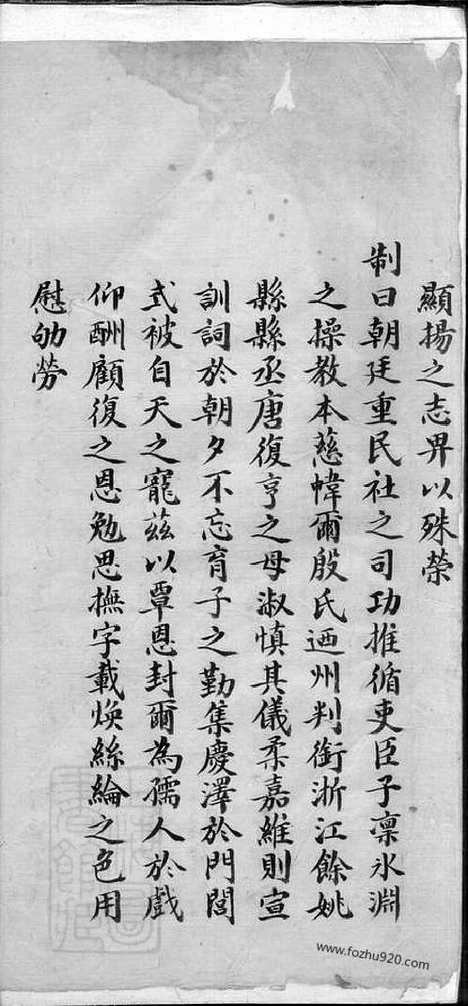 顯揚之志畀以殊榮
制曰朝廷重民社之司功推循吏臣子凛氷淵
之操教本慈幃爾殷氏迺州判銜浙江餘姚
縣縣丞唐復亨之母淑慎其儀柔嘉維則宣
訓詞於朝夕不忘育子之勤集慶澤於門閭
式被自天之寵茲以覃恩封爾為孺人於戲
仰酬顧復之恩勉思撫字載煥絲綸之色用
慰劬勞
www.fozhu920.com